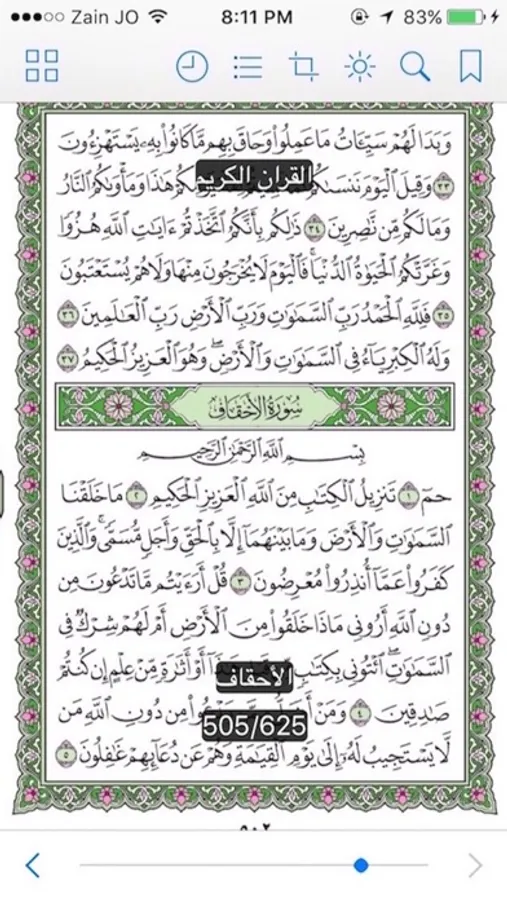 Zain JO 8:11 PM 83%
وَبَدَا لَهُمْ سَيِّـَٔاتُ مَا عَمِلُوا۟ وَحَاقَ بِهِم مَّا كَانُوا۟ بِهِۦ يَسْتَهْزِءُونَ
القرآن الكريم
٣٣ وَقِيلَ ٱلْيَوْمَ نَنسَىٰكُمْ هَٰذَا وَمَأْوَىٰكُمُ ٱلنَّارُ
وَمَا لَكُم مِّن نَّـٰصِرِينَ ٣٤ ذَٰلِكُم بِأَنَّكُمُ ٱتَّخَذْتُمْ ءَايَـٰتِ ٱللَّهِ هُزُوًا
وَغَرَّتْكُمُ ٱلْحَيَوٰةُ ٱلدُّنْيَا ۚ فَٱلْيَوْمَ لَا يُخْرَجُونَ مِنْهَا وَلَا هُمْ يُسْتَعْتَبُونَ
٣٥ فَلِلَّهِ ٱلْحَمْدُ رَبِّ ٱلسَّمَـٰوَٰتِ وَرَبِّ ٱلْأَرْضِ رَبِّ ٱلْعَـٰلَمِينَ ٣٦
وَلَهُ ٱلْكِبْرِيَآءُ فِى ٱلسَّمَـٰوَٰتِ وَٱلْأَرْضِ ۖ وَهُوَ ٱلْعَزِيزُ ٱلْحَكِيمُ ٣٧
سُورَةُ الأَحْقَافِ
بِسْمِ ٱللَّهِ ٱلرَّحْمَـٰنِ ٱلرَّحِيمِ
حمٓ ١ تَنزِيلُ ٱلْكِتَـٰبِ مِنَ ٱللَّهِ ٱلْعَزِيزِ ٱلْحَكِيمِ ٢ مَا خَلَقْنَا
ٱلسَّمَـٰوَٰتِ وَٱلْأَرْضَ وَمَا بَيْنَهُمَآ إِلَّا بِٱلْحَقِّ وَأَجَلٍ مُّسَمًّى ۚ وَٱلَّذِينَ
كَفَرُوا۟ عَمَّآ أُنذِرُوا۟ مُعْرِضُونَ ٣ قُلْ أَرَءَيْتُم مَّا تَدْعُونَ مِن
دُونِ ٱللَّهِ أَرُونِى مَاذَا خَلَقُوا۟ مِنَ ٱلْأَرْضِ أَمْ لَهُمْ شِرْكٌ فِى
ٱلسَّمَـٰوَٰتِ ۖ ٱئْتُونِى بِكِتَـٰبٍ أَوْ أَثَـٰرَةٍ مِّنْ عِلْمٍ إِن كُنتُمْ
الأحقاف
صَـٰدِقِينَ ٤ وَمَنْ مِن دُونِ ٱللَّهِ مَن
505/625
لَّا يَسْتَجِيبُ لَهُۥٓ إِلَىٰ يَوْمِ ٱلْقِيَـٰمَةِ وَهُمْ عَن دُعَآئِهِمْ غَـٰفِلُونَ ٥
٥٠٢